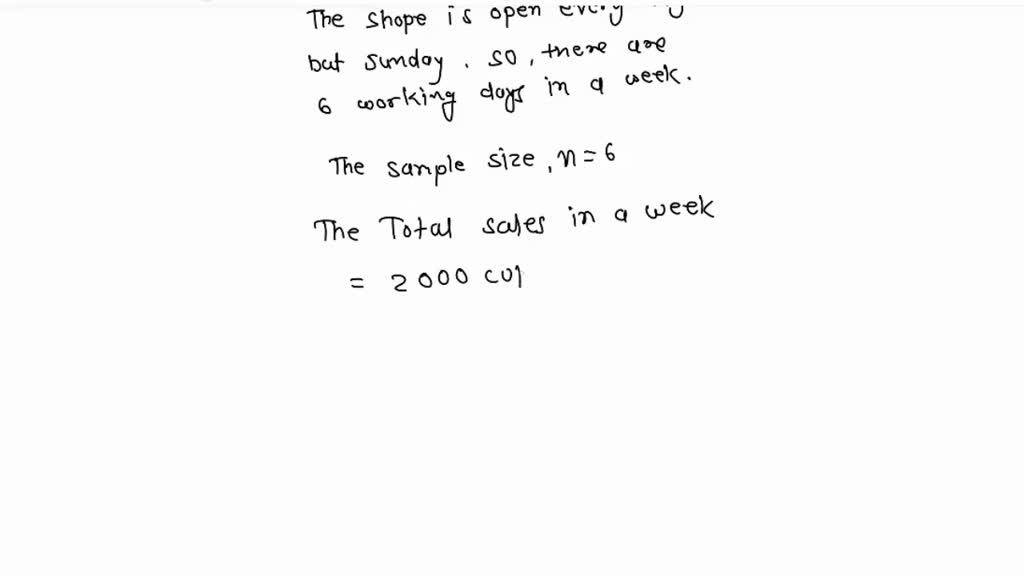 The shope is open every
but sunday. so, there are
6 working days in a week.
The sample size, n = 6
The Total sales in a week
= 2000 cup